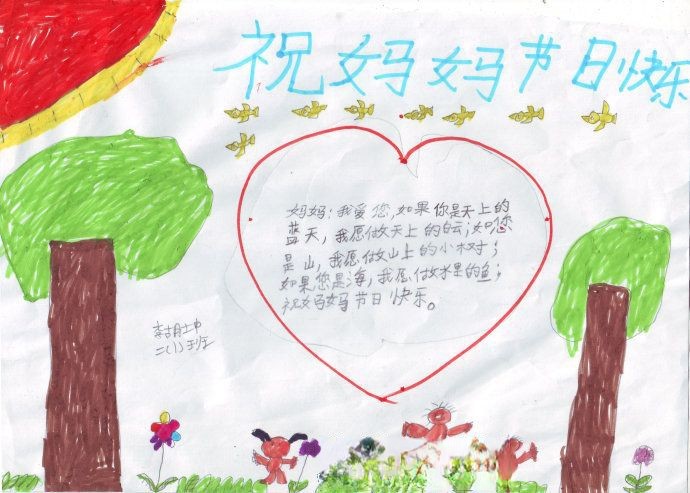 祝妈妈节日快乐
妈妈:我爱您,如果你是天上的
蓝天,我愿做天上的白云;如您
是山,我愿做山上的小树;
如果您是海,我愿做水里的鱼;
祝妈妈节日快乐。
二(1)班